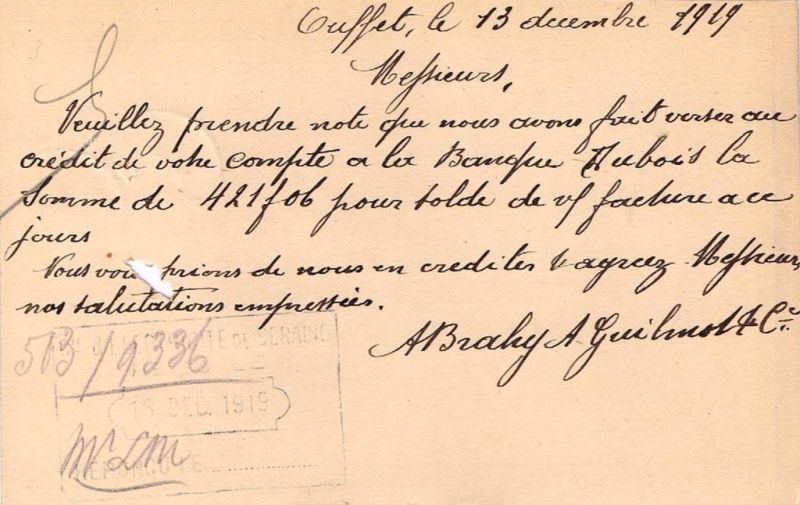 Ouffet, le 13 decembre 1919
Messieurs,
Veuillez prendre note que nous avons fait verser au
crédit de votre compte a la Banque Dubois la
Somme de 421f06 pour solde de v/ facture a ce
jours
Nous vous prions de nous en crediter & agreez Messieurs,
nos salutations empressées.
A Brahy A Guilmot & Cie
513/9336
DE SERAING
15 DEC. 1919